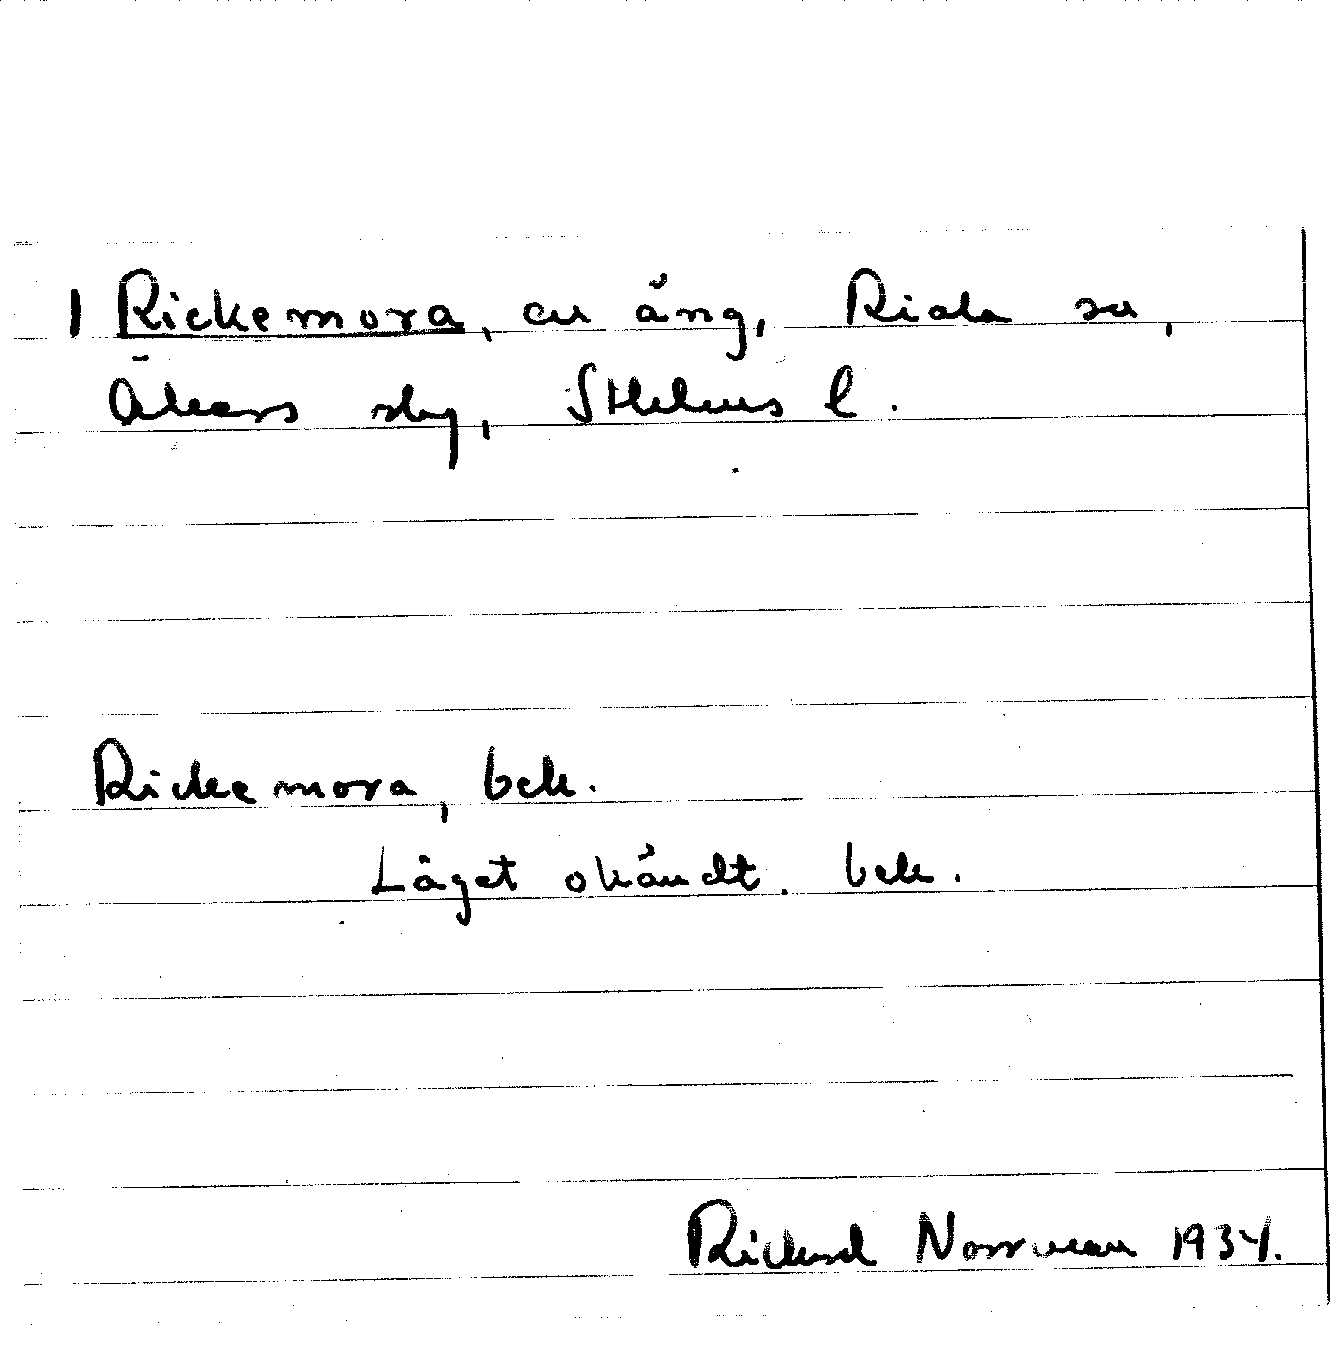 1 Rickemora, en äng, Riala sn,
Åkers sbg, Sthlms l.
Rickemora, bek.
Läget okändt. bek.
Rickard Norrman 1934.